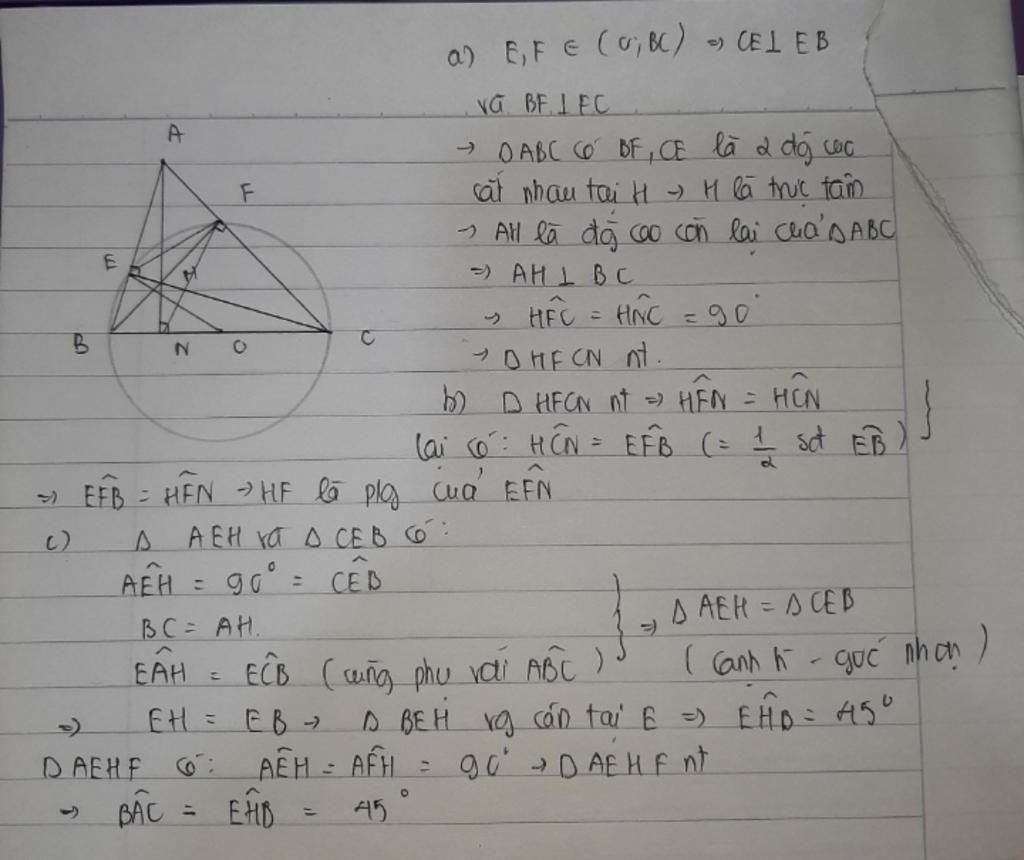 a) E, F ∈ (O; BC) ⇒ CE ⊥ EB
và BF ⊥ FC
→ ΔABC có BF, CE là 2 đg cao
cắt nhau tại H → H là trực tâm
→ AH là đg cao còn lại của ΔABC
⇒ AH ⊥ BC
→ HF̂C = HN̂C = 90°
→ □ HFCN nt.
A
F
E
H
B
N
O
C
b) □ HFCN nt ⇒ HF̂N = HĈN
Lại có: HĈN = EF̂B (= 1/2 sđ EB)
⇒ EF̂B = HF̂N → HF là p/g của EF̂N
c) Δ AEH và Δ CEB có:
AÊH = 90° = CÊB
BC = AH.
EÂH = EĈB (cùng phụ với AB̂C)
⇒ Δ AEH = Δ CEB
(cạnh h - góc nhọn)
⇒ EH = EB → Δ BEH vg cân tại E ⇒ EĤB = 45°
□ AEHF có: AÊH = AF̂H = 90° → □ AEHF nt
→ BÂC = EĤB = 45°